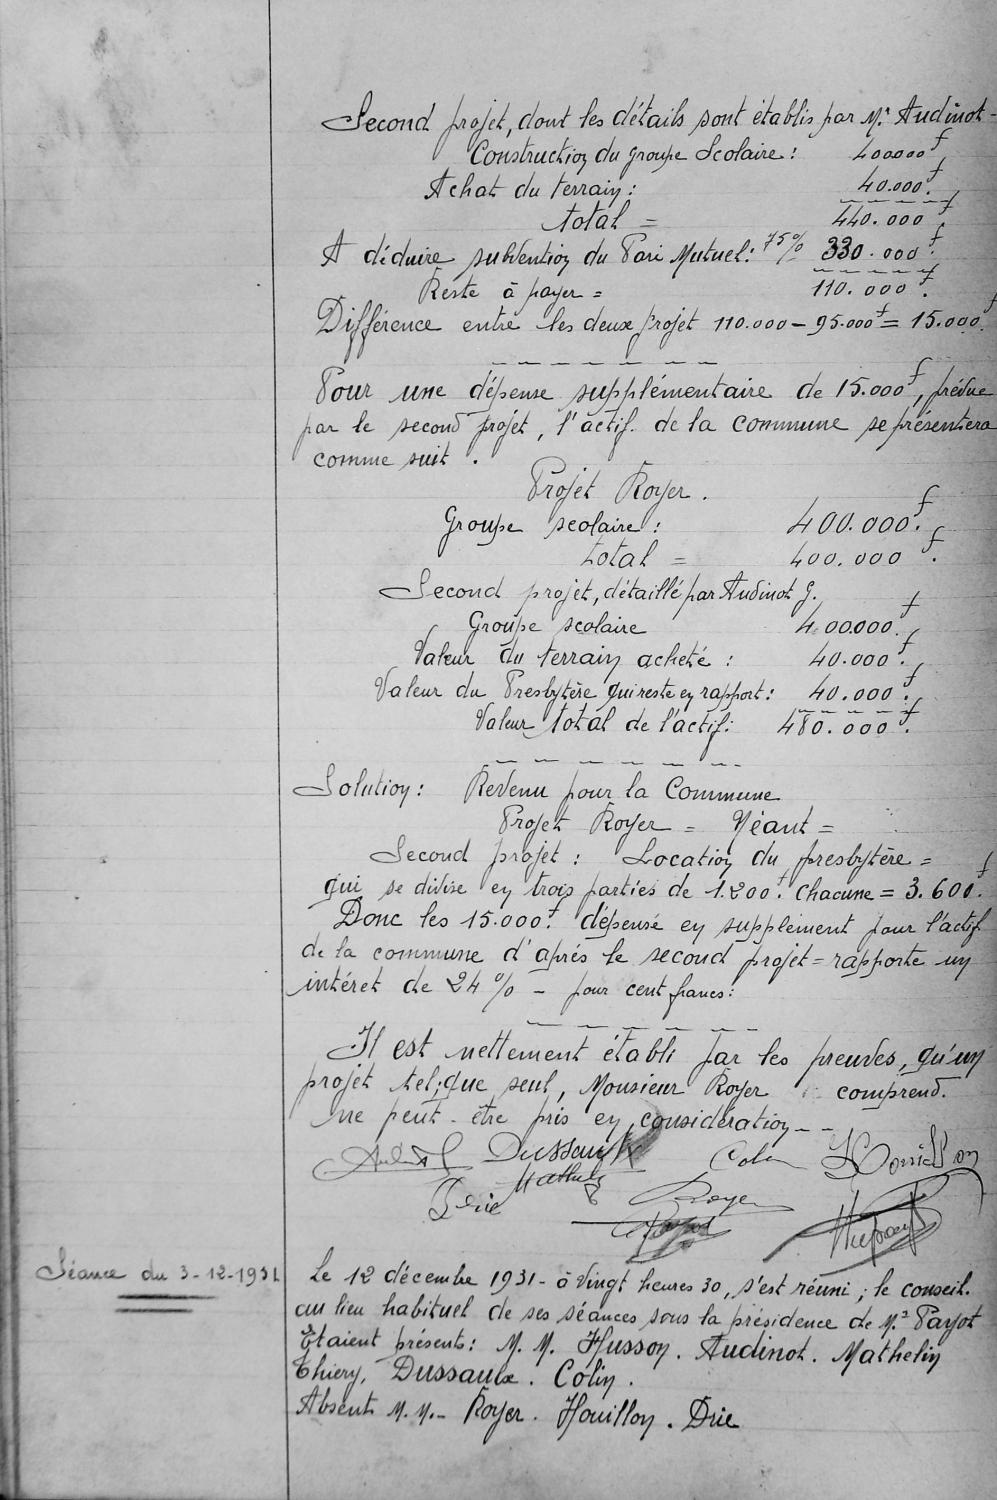 Second projet, dont les détails sont établis par Mr. Audinot -
Construction du groupe Scolaire : 400000f
Achat du terrain : 40.000f.
total = 440.000f.
A déduire subvention du Pari Mutuel : 75% 330.000f.
Reste à payer = 110.000f.
Différence entre les deux projet 110.000 - 95.000f = 15.000f.
Pour une dépense supplémentaire de 15.000f, prévue
par le second projet, l'actif. de la commune se présentera
comme suit .
Projet Royer .
Groupe scolaire : 400.000f.
total = 400.000f.
Second projet, détaillé par Audinot G.
Groupe scolaire 400.000f.
Valeur du terrain acheté : 40.000f.
Valeur du Presbytère qui reste en rapport : 40.000f.
Valeur total de l'actif : 480.000f.
Solution : Revenu pour la Commune
Projet Royer = Néant =
Second projet : Location du presbytère =
qui se divise en trois parties de 1.200f. chacune = 3.600f.
Donc les 15.000f. dépensé en supplément pour l'actif
de la commune d'après le second projet = rapporte un
intéret de 24 % - pour cent francs :
Il est nettement établi par les preuves, qu'un
projet tel; que seul, Monsieur Royer comprend.
ne peut - être pris en considération - -
Dussaulx Colin Houillon
Drie Mathelin Royer
Payot
Séance du 3-12-1931
Le 12 décembre 1931 - à vingt heures 30, s'est réuni ; le conseil.
au lieu habituel de ses séances sous la présidence de Mr Payot
Etaient présents : M. M. Husson . Audinot . Mathelin
Thiery, Dussaulx . Colin .
Absent M. M. - Royer . Houillon . Drie